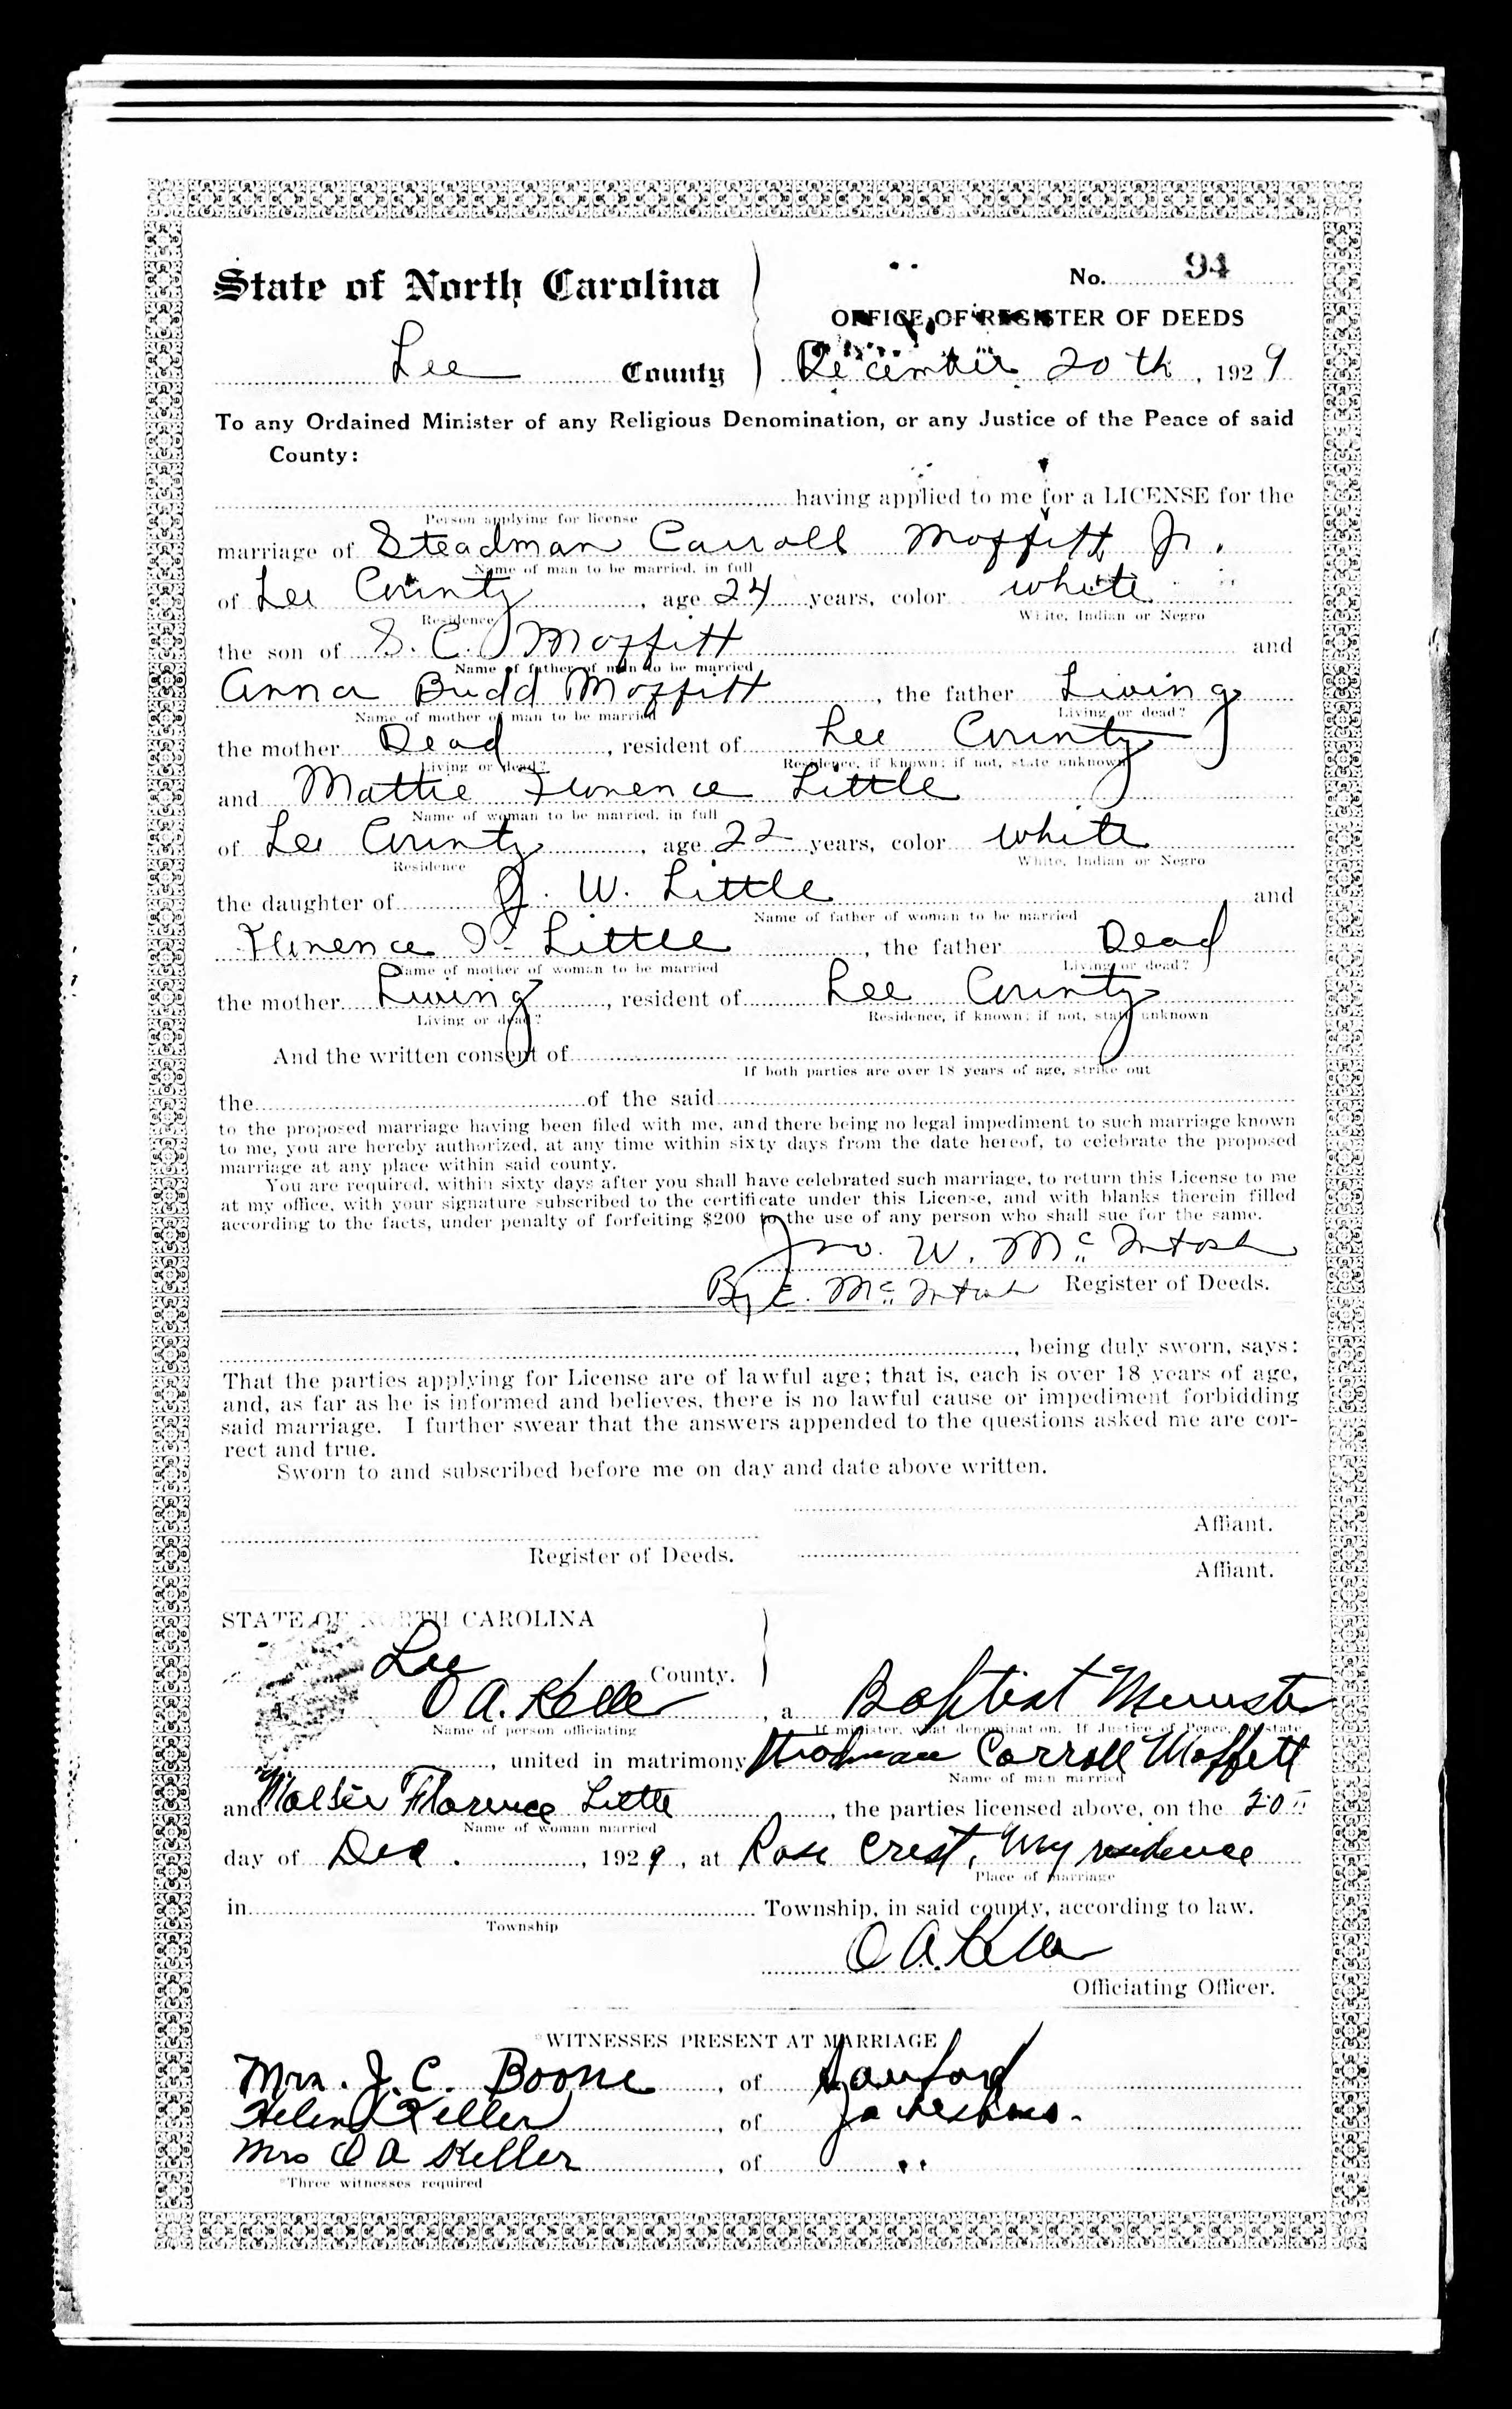 State of North Carolina
No. 94
OFFICE OF REGISTER OF DEEDS
Lee County
December 20th, 1929
To any Ordained Minister of any Religious Denomination, or any Justice of the Peace of said
County:
having applied to me for a LICENSE for the
Person applying for license
marriage of Steadman Carroll Moffitt Jr.
Name of man to be married, in full
of Lee County, age 24 years, color white
Residence White, Indian or Negro
the son of S. C. Moffitt and
Name of father of man to be married
Anna Budd Moffitt, the father Living
Name of mother of man to be married Living or dead?
the mother Dead, resident of Lee County
Living or dead? Residence, if known; if not, state unknown
and Mattie Florence Little
Name of woman to be married, in full
of Lee County, age 22 years, color white
Residence White, Indian or Negro
the daughter of J. W. Little and
Name of father of woman to be married
Florence Little, the father Dead
Name of mother of woman to be married Living or dead?
the mother Living, resident of Lee County
Living or dead? Residence, if known; if not, state unknown
And the written consent of
If both parties are over 18 years of age, strike out
the of the said
to the proposed marriage having been filed with me, and there being no legal impediment to such marriage known
to me, you are hereby authorized, at any time within sixty days from the date hereof, to celebrate the proposed
marriage at any place within said county.
You are required, within sixty days after you shall have celebrated such marriage, to return this License to me
at my office, with your signature subscribed to the certificate under this License, and with blanks therein filled
according to the facts, under penalty of forfeiting $200 to the use of any person who shall sue for the same.
Jno. W. McIntosh
By E. McIntosh Register of Deeds.
, being duly sworn, says:
That the parties applying for License are of lawful age; that is, each is over 18 years of age,
and, as far as he is informed and believes, there is no lawful cause or impediment forbidding
said marriage. I further swear that the answers appended to the questions asked me are cor-
rect and true.
Sworn to and subscribed before me on day and date above written.
Affiant.
Register of Deeds.
Affiant.
STATE OF NORTH CAROLINA
Lee County.
O A. Keller, a Baptist Minister
Name of person officiating If minister, what denomination. If Justice of Peace, so state
, united in matrimony Stedman Carroll Moffitt
Name of man married
and Mattie Florence Little, the parties licensed above, on the 20
Name of woman married
day of Dec., 1929, at Rose Crest, My residence
Place of marriage
in Township, in said county, according to law.
Township
O A. Keller
Officiating Officer.
*WITNESSES PRESENT AT MARRIAGE
Mrs. J. C. Boone, of Sanford
Helen Keller, of Jonesboro.
Mrs O A Keller, of " "
*Three witnesses required